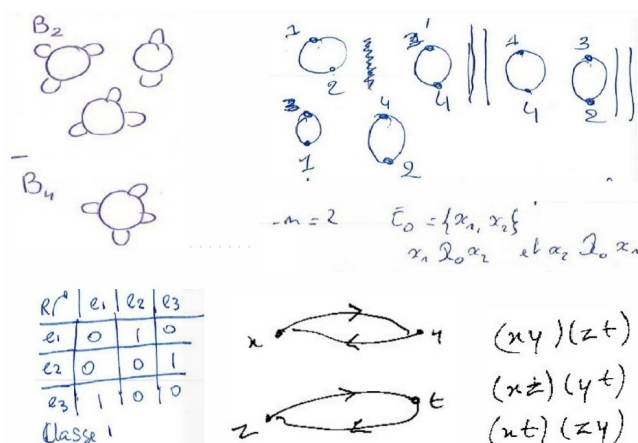 B₂
B₄
1 2
4
1 4
3 2
1 4 2
n=2 E₀ = {x₁, x₂}
x₁ R₀ x₂ et x₂ R₀ x₁
e₁ e₂ e₃
e₁ 0 1 0
e₂ 0 0 1
e₃ 1 0 0
Classe 1
x y
z t
(xy)(zt)
(xz)(yt)
(xt)(zy)